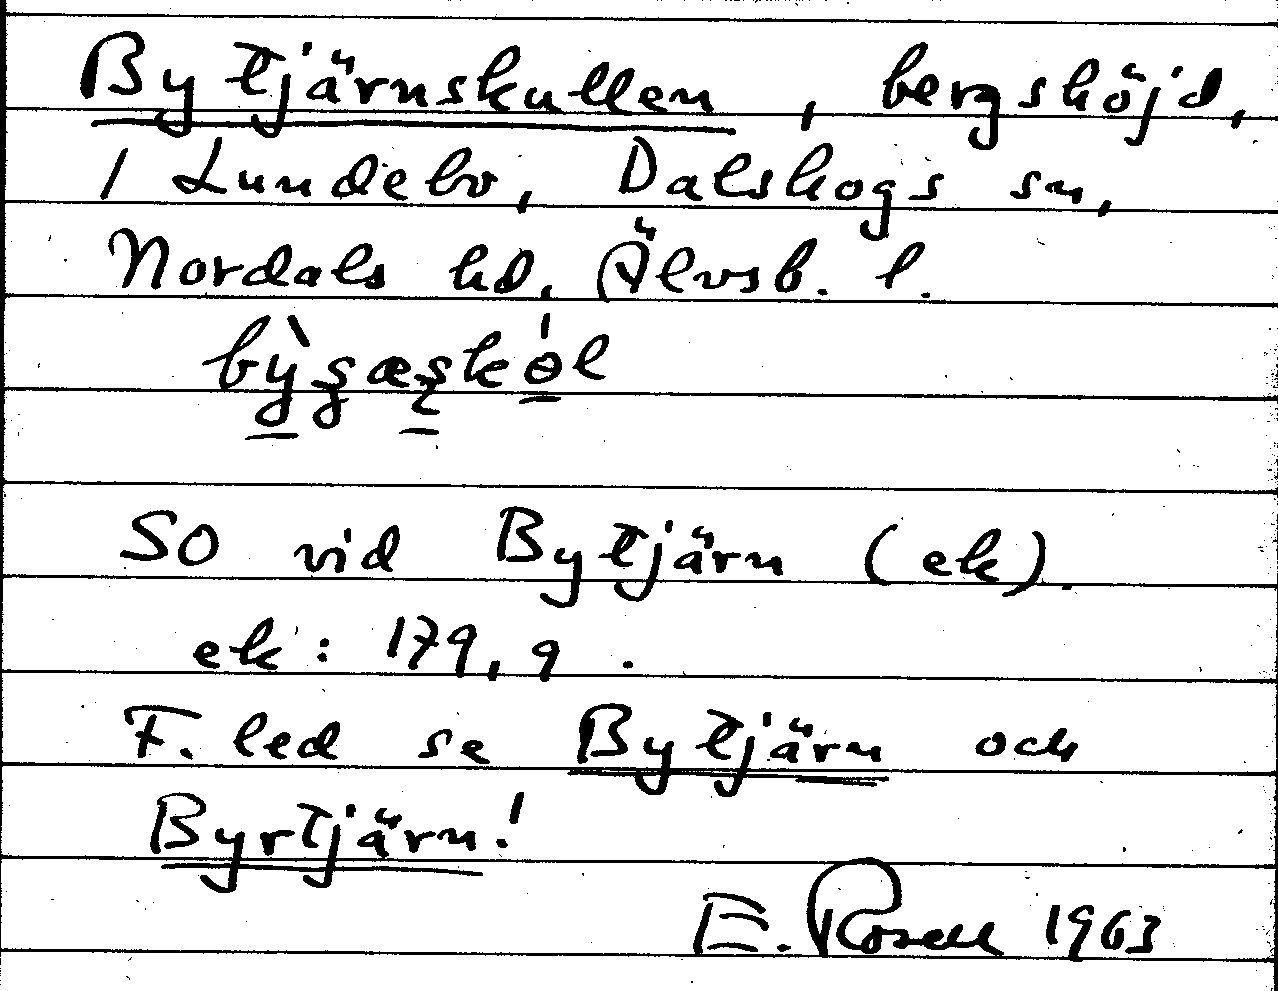 Bytjärnskullen, bergshöjd,
i Lundebo, Dalskogs sn,
Nordals hd, Älvsb. l.
SO vid Bytjärn (ek).
ek: 179,9.
F. led se Bytjärn och
Byrtjärn!
E. Rosell 1963